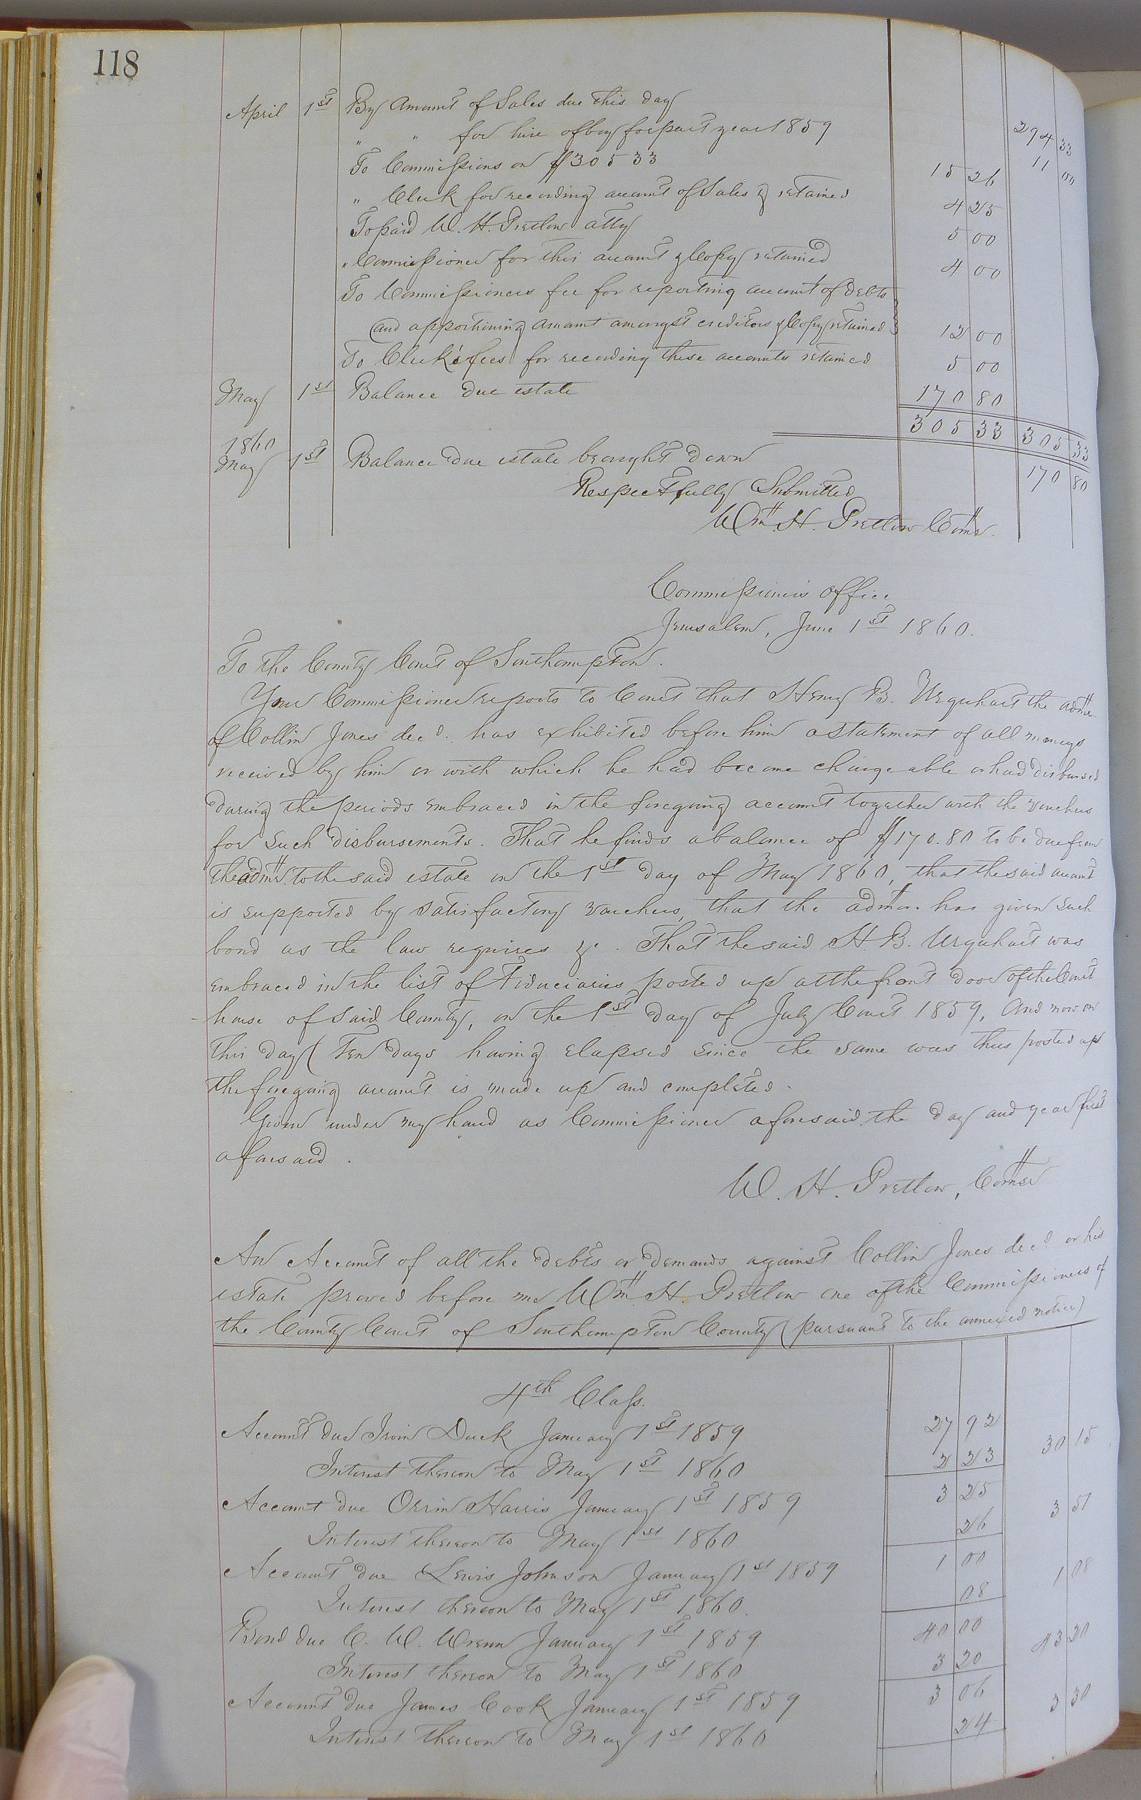 118
April 1st By Amount of Sales due this day 294 33
" " for hire of boy for part year 1859 11 00
To Commissions on $305 33 15 26
" Clerk for recording account of Sales & retained 4 25
To paid W. H. Pretlow atty 5 00
" Commissioner for this account & Copy retained 4 00
To Commissioners fee for reporting account of Debts
and apportioning amount amongst creditors & Copy retained 12 00
To Clerk's fees for recording these accounts retained 5 00
May 1st Balance due estate 170 80
305 33 305 33
1860
May 1st Balance due estate brought down 170 80
Respectfully Submitted
Wm. H. Pretlow Comr.
Commissioners Office
Jerusalem, June 1st 1860.
To the County Court of Southampton.
Your Commissioner reports to Court that Henry B. Urquhart the admr
of Collin Jones decd. has exhibited before him a statement of all moneys
received by him or with which he had become chargeable or had disbursed
during the periods embraced in the foregoing account together with the vouchers
for such disbursements. That he finds a balance of $170.80 to be due from
the admr. to the said estate on the 1st day of May 1860, that the said account
is supported by satisfactory vouchers, that the admr. has given such
bond as the law requires &c. That the said H B. Urquhart was
embraced in the list of Fiduciaries posted up at the front door of the Court
house of said County, on the 1st day of July Court 1859, And now on
this day (ten days having elapsed since the same was thus posted up
the foregoing account is made up and completed.
Given under my hand as Commissioner aforesaid, the day and year first
aforesaid.
W. H. Pretlow, Comr
An Account of all the debts or demands against Collin Jones decd or his
estate proved before me Wm. H. Pretlow one of the Commissioners of
the County Court of Southampton County (pursuant to the annexed notice)
4th Class.
Account due Irvin Duck January 1st 1859 27 92
Interest thereon to May 1st 1860 2 23 30 15
Account due Orrin Harris January 1st 1859 3 25
Interest thereon to May 1st 1860 26 3 51
Account due Lewis Johnson January 1st 1859 1 00
Interest thereon to May 1st 1860. 08 1 08
Bond due C. W. Wrenn January 1st 1859 40 00
Interest thereon to May 1st 1860 3 20 43 20
Account due James Cook January 1st 1859 3 06
Interest thereon to May 1st 1860 24 3 30